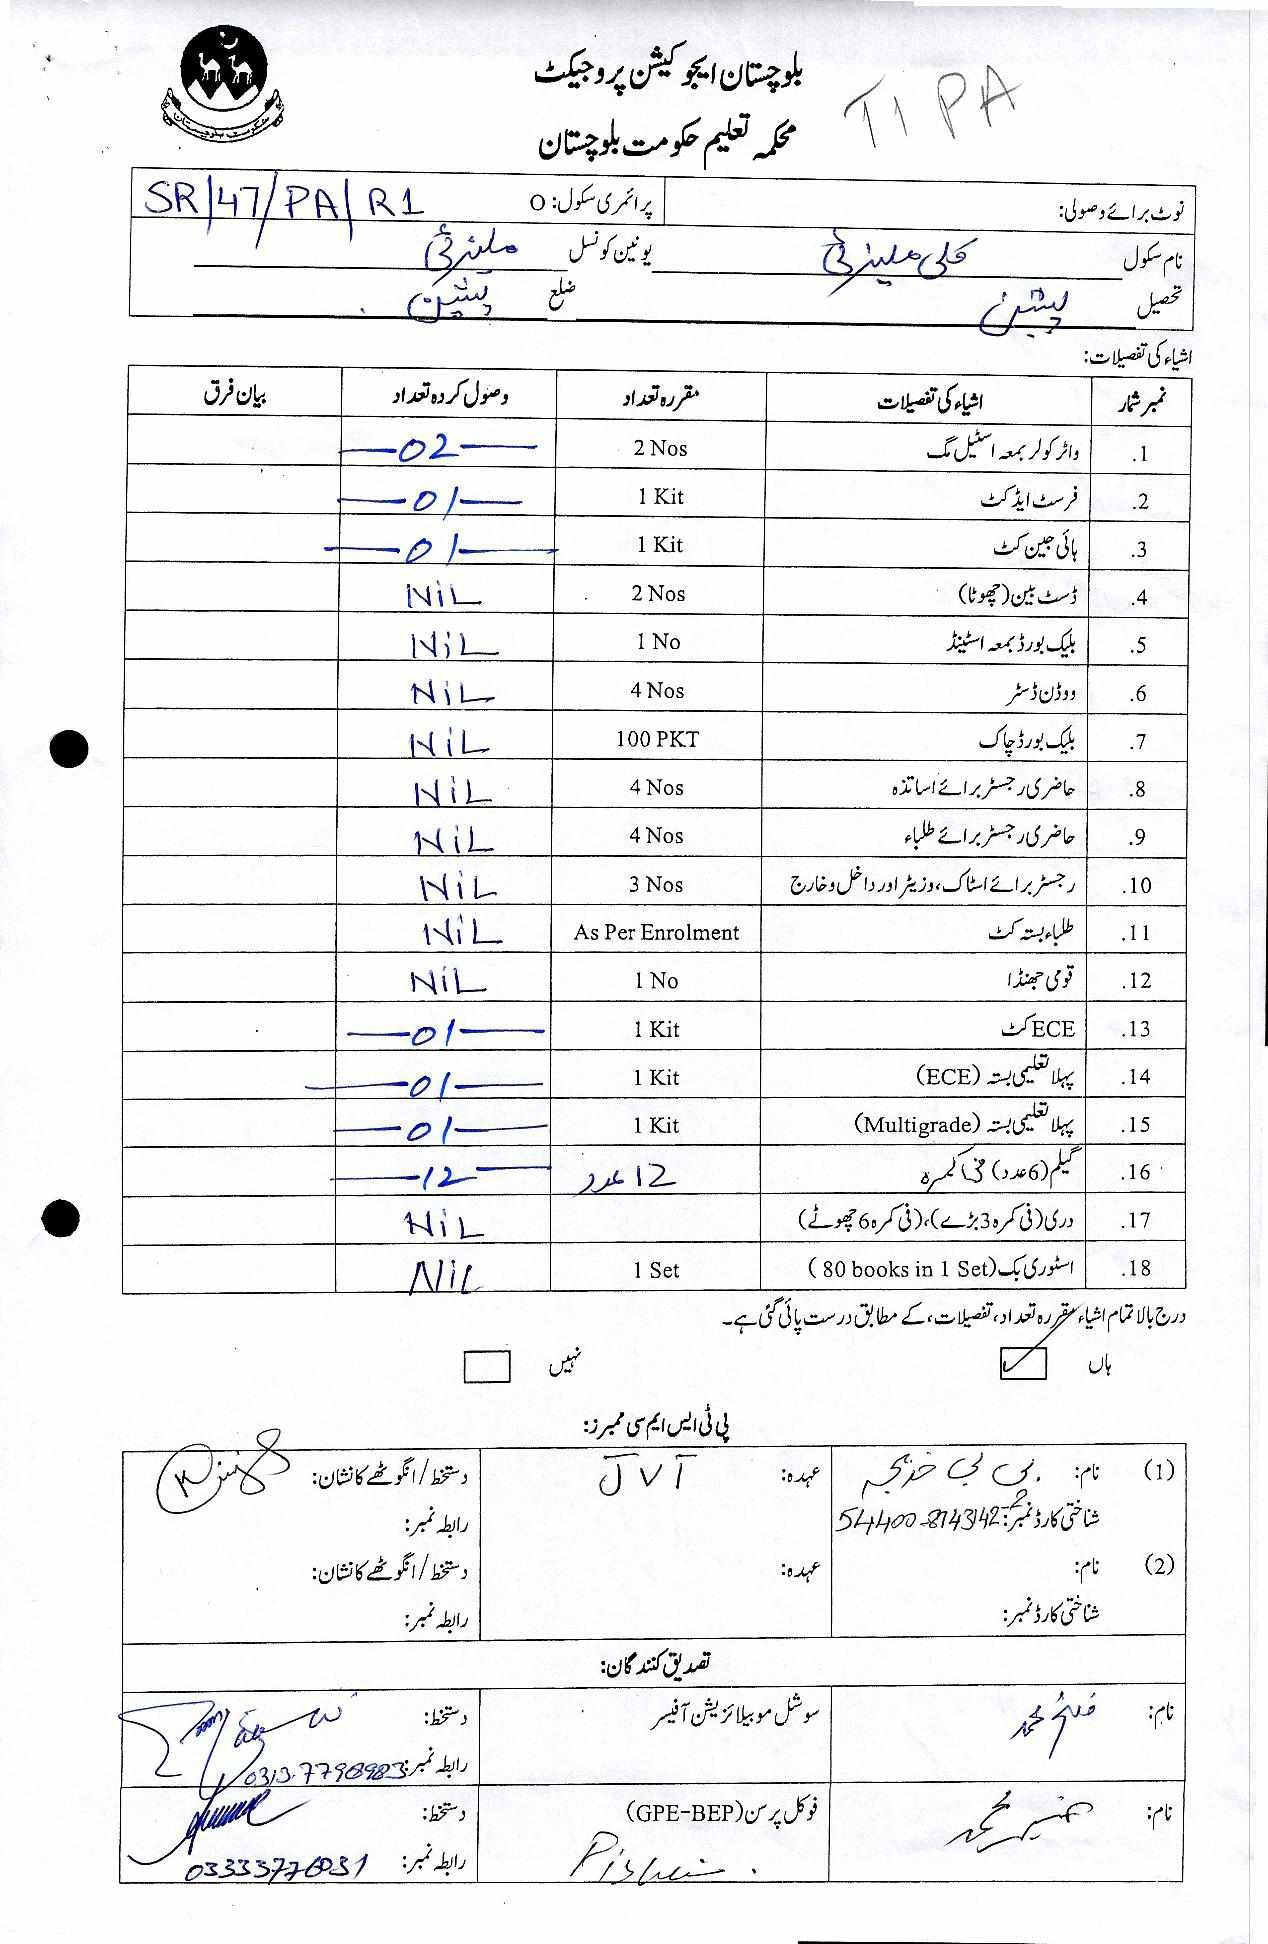 بلوچستان ایجوکیشن پروجیکٹ
T1 PA
محکمہ تعلیم حکومت بلوچستان
حکومت بلوچستان
نوٹ برائے وصولی: پرائمری سکول: O SR/47/PA/R1
نام سکول کلی ملیزئی یونین کونسل ملیزئی
تحصیل پشین ضلع پشین
اشیاء کی تفصیلات:
نمبر شمار اشیاء کی تفصیلات مقررہ تعداد وصول کردہ تعداد بیان فرق
1. واٹر کولر بمعہ اسٹیل مگ 2 Nos 02
2. فرسٹ ایڈ کٹ 1 Kit 01
3. ہائی جین کٹ 1 Kit 01
4. ڈسٹ بین (چھوٹا) 2 Nos NiL
5. بلیک بورڈ بمعہ اسٹینڈ 1 No NiL
6. ووڈن ڈسٹر 4 Nos NiL
7. بلیک بورڈ چاک 100 PKT NiL
8. حاضری رجسٹر برائے اساتذہ 4 Nos NiL
9. حاضری رجسٹر برائے طلباء 4 Nos NiL
10. رجسٹر برائے اسٹاک، وزیٹر اور داخل و خارج 3 Nos NiL
11. طلباء بستہ کٹ As Per Enrolment NiL
12. قومی جھنڈا 1 No NiL
13. ECE کٹ 1 Kit 01
14. پہلا تعلیمی بستہ (ECE) 1 Kit 01
15. پہلا تعلیمی بستہ (Multigrade) 1 Kit 01
16. گیلم (6 عدد) فی کمرہ 12 عدد 12
17. دری (فی کمرہ 3 بڑے)، (فی کمرہ 6 چھوٹے) NiL
18. اسٹوری بک (80 books in 1 Set) 1 Set NiL
درج بالا تمام اشیاء مقررہ تعداد، تفصیلات، کے مطابق درست پائی گئی ہے۔
ہاں ✓ نہیں
پی ٹی ایس ایم سی ممبرز:
(1) نام: بی بی خدیجہ عہدہ: JVT دستخط / انگوٹھے کا نشان:
شناختی کارڈ نمبر: 54400-8743142 رابطہ نمبر:
(2) نام: عہدہ: دستخط / انگوٹھے کا نشان:
شناختی کارڈ نمبر: رابطہ نمبر:
تصدیق کنندگان:
نام: محمد سوشل موبیلائزیشن آفیسر دستخط:
رابطہ نمبر: 0313-7798983
نام: محمد فوکل پرسن (GPE-BEP) دستخط:
Pishin رابطہ نمبر: 03333776031